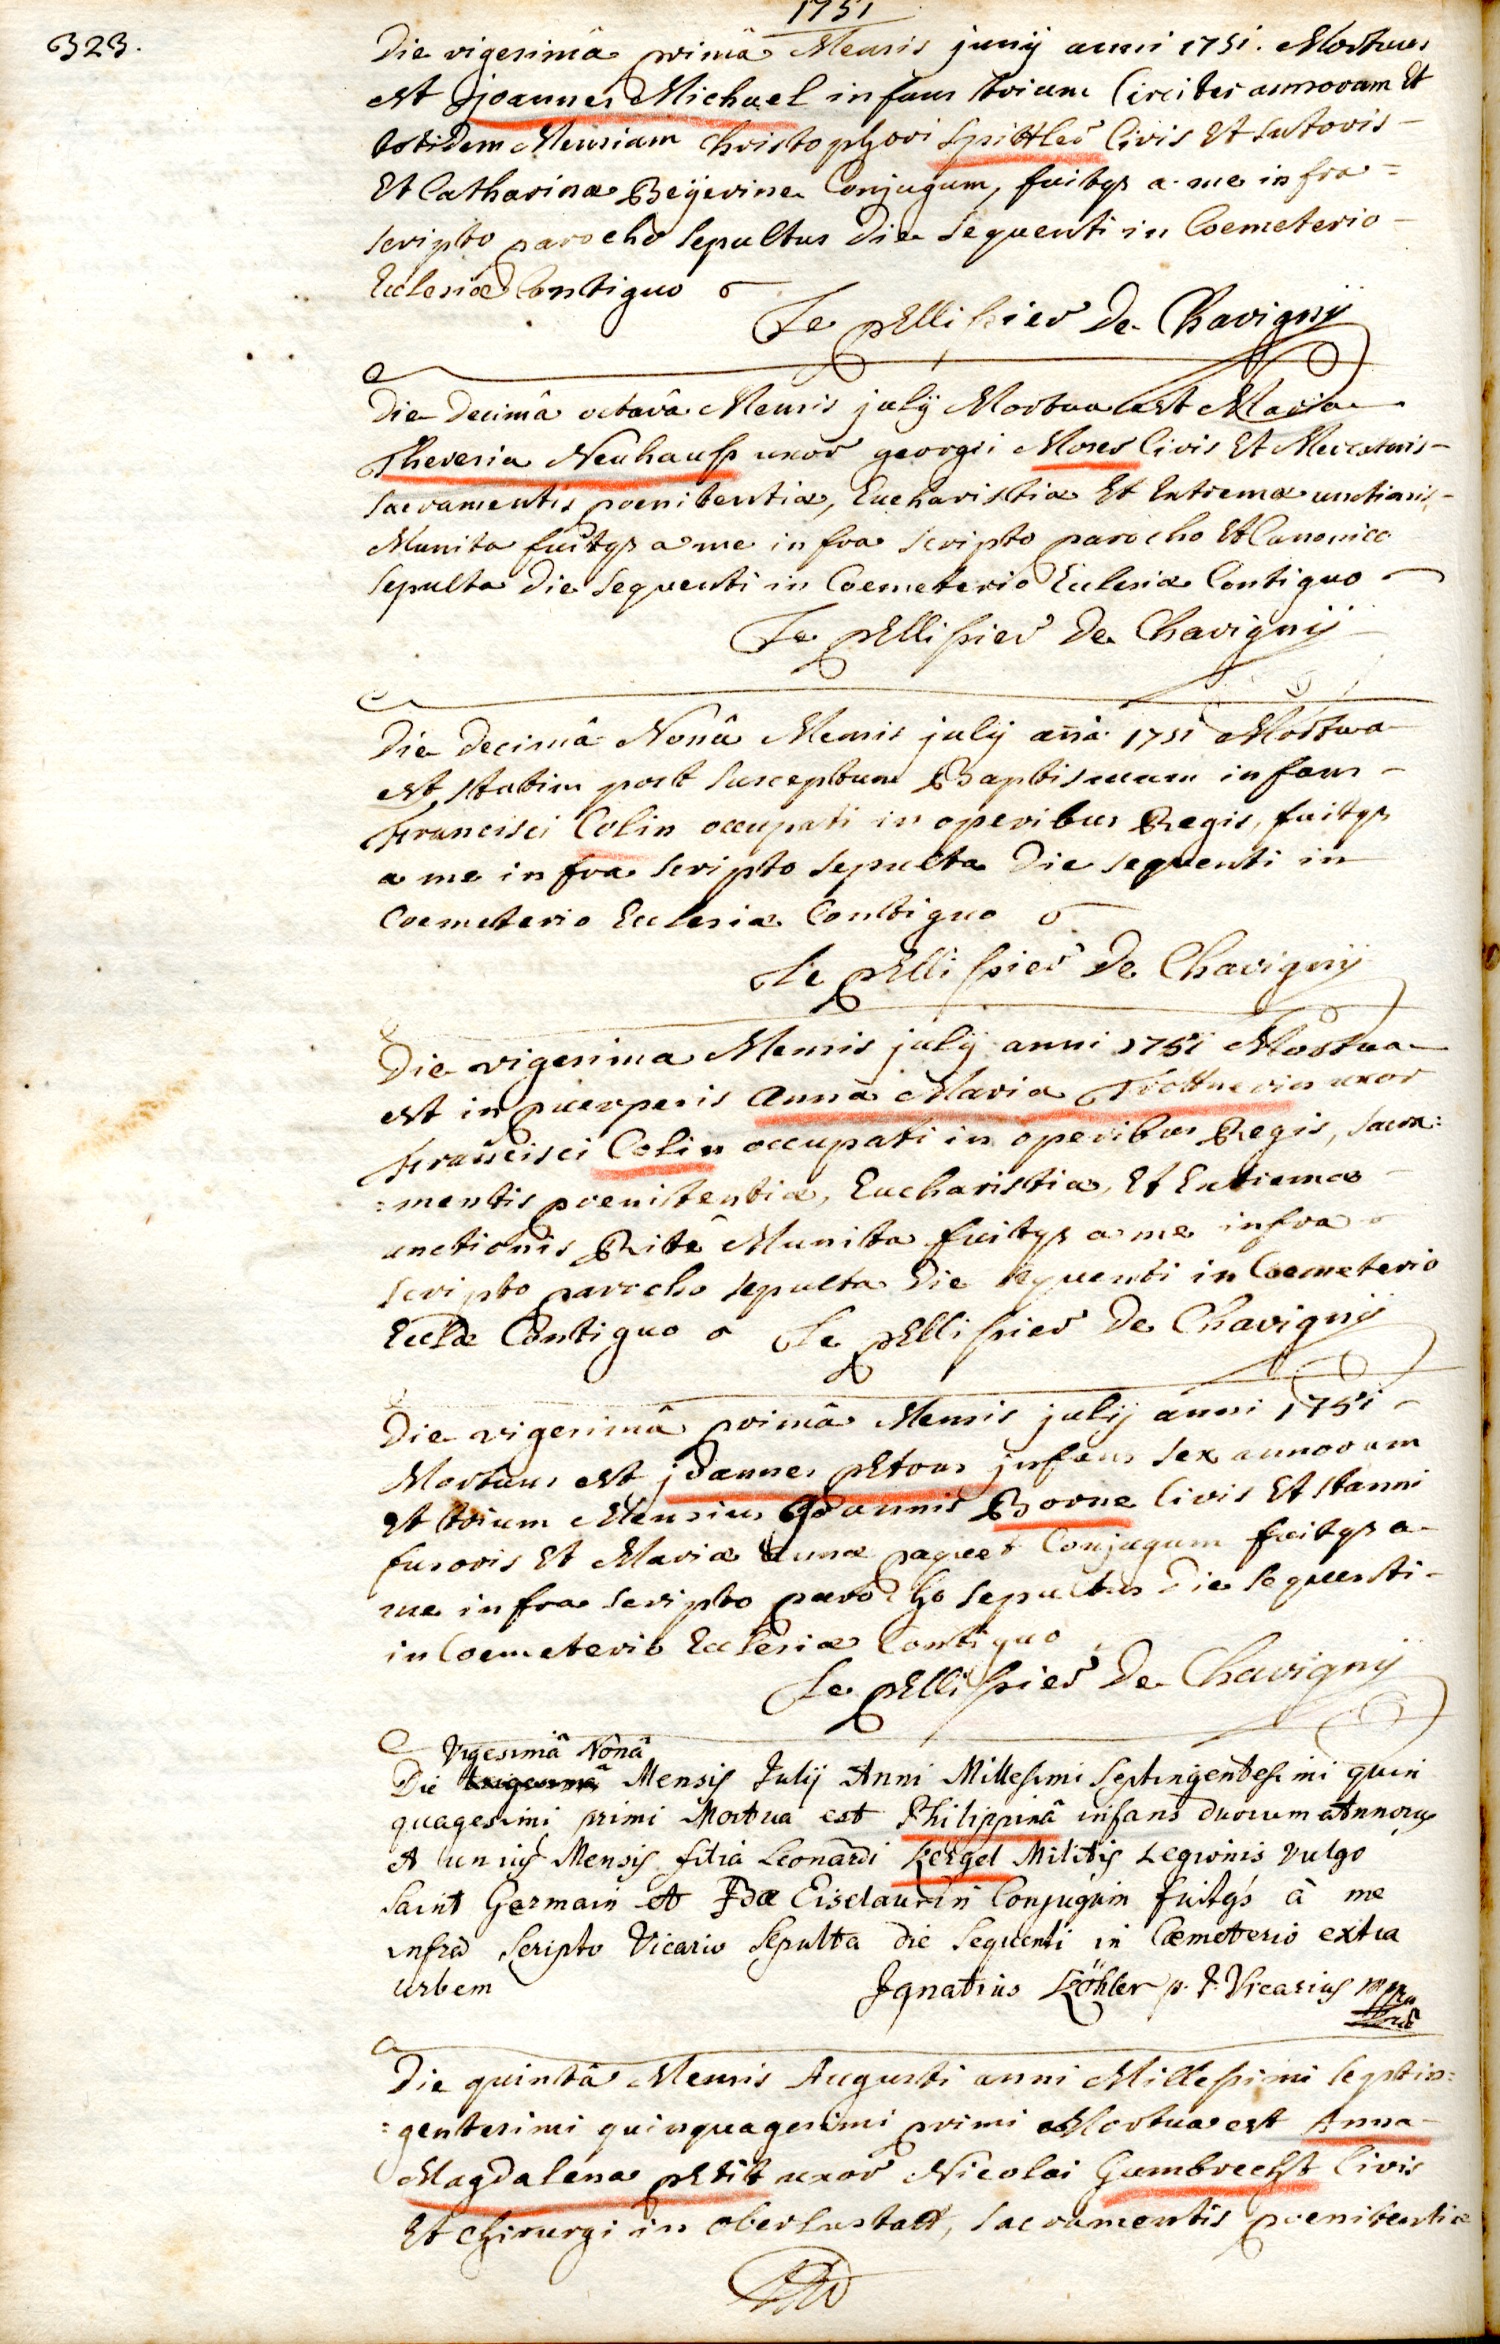 1751
323.
Die vigesimâ primâ Mensis junij anni 1751. Mortuus
est joannes Michael infans trium Circiter annorum Et
totidem Mensium Christophori Spittler Civis Et Sutoris -
Et Catharinæ Beÿerine Conjugum, fuitqs a me infra =
scripto parocho Sepultus die sequenti in Coemeterio -
Ecclesiæ Contiguo
Le pellissier De Chavignÿ
Die Decimâ octavâ Mensis julij Mortua est Maria
Theresia Neuhauss uxor georgii Moses Civis Et Mercatoris -
Sacramentis poenitentiæ, Eucharistiæ Et Extremæ unctionis -
Munita fuitqs a me infra scripto parocho Et Canonico
Sepulta Die sequenti in Coemeterio Ecclesiæ Contiguo
Le pellissier De Chavignÿ
Die Decimâ Nonâ Mensis julij añi 1751 Mortua
est statim post susceptum Baptismum infans -
Francisci Colin occupati in operibus Regis, fuitqs
a me infra scripto sepulta Die sequenti in
Coemeterio Ecclesiæ Contiguo
Le pellissier De Chavignÿ
Die vigesima Mensis julij anni 1751 Mortua
est in puerperis anna Maria Trottnerin uxor
Francisci Colin occupati in operibus Regis, Sacra:
:mentis poenitentiæ, Eucharistiæ, Et Extremæ
unctionis Ritê Munita fuitqs a me infra
scripto parocho sepulta Die sequenti in Coemeterio
Ecclæ Contiguo Le pellissier De Chavignÿ
Die vigesimâ primâ Mensis julij anni 1751 -
Mortuus est joannes petrus infans sex annorum
et trium Mensium Joannis Borne Civis Et stanni
fusoris Et Mariæ annæ paquet Conjugum fuitqs a
me infra scripto parocho sepultus Die sequenti -
in Coemeterio Ecclesiæ Contiguo
Le pellissier De Chavignÿ
Vigesimâ Nonâ
Die Mensis Julij Anni Millesimi Septingentesimi quin
quagesimi primi Mortua est Philippinâ infans duorum annorum
et unius Mensis filia Leonardi Kergel Militis Legionis vulgo
Saint Germain et Conjugum fuitqs à me
infra Scripto Vicario Sepulta die Sequenti in Cæmeterio extra
urbem Ignatius Köhler p. t. Vicarius mpria
Die quintâ Mensis Augusti anni Millessimi septin:
:gentesimi quinquagesimi primi Mortua est Anna -
Magdalena petit uxor Nicolai Gumbrecht Civis
Et chirurgi in oberlustatt, sacramentis poenitentiæ